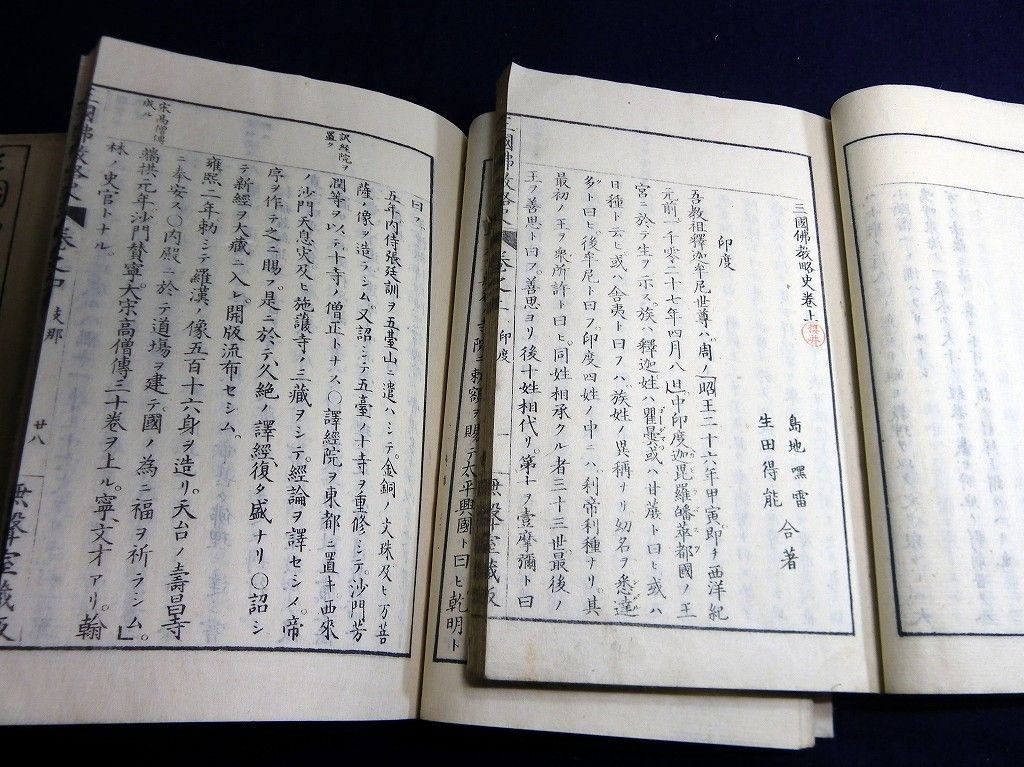 三國佛教略史卷上
島地黙雷
生田得能 合著
印度
吾教祖釋迦牟尼世尊ハ周ノ昭王二十六年甲寅即チ西洋紀
元前一千零二十七年四月八日中印度迦毘羅皤萃都國ノ王
宮ニ於テ生ヲ示ス。族ハ釋迦姓ハ瞿曇或ハ甘蔗ト曰ヒ或ハ
日種ト云ヒ或ハ舍夷ト曰フハ族姓ノ異稱ナリ幼名ヲ悉達
多ト曰ヒ後牟尼ト曰フ印度四姓ノ中ニハ刹帝利種ナリ。其
最初ノ王ヲ衆所許ト曰ヒ同姓相承クル者三十三世最後ノ
王ヲ善思ト曰フ。善思ヨリ後十姓相代リ。第十ヲ壹摩彌ト曰
三國佛教略史 卷之上 印度 一
勅額ヲ賜テ太平興國ト曰ヒ乾明ト
曰フ
訳経院ヲ置ク
五年内侍張廷訓ヲ五䑓山ニ遣ハシテ。金銅ノ文殊及ヒ万菩
薩ノ像ヲ造ラシム。又詔シテ五臺ノ十寺ヲ重修シテ。沙門芳
潤等ヲ以テ十寺ノ僧正トナス。〇譯經院ヲ東都ニ置キ。西來
ノ沙門天息災及ヒ施護寺ノ三藏ヲシテ。經論ヲ譯セシメ。帝
序ヲ作テ之ニ賜フ。是ニ於テ久絶ノ譯經復タ盛ナリ〇詔シ
テ新經ヲ大藏ニ入レ。開版流布セシム。
雍熙二年勅シテ羅漢ノ像五百十六身ヲ造リ。天台ノ壽昌寺
ニ奉安ス〇内殿ニ於テ道場ヲ建テ國ノ為ニ福ヲ祈ラシム。
宋高僧傳成ル
端拱元年沙門贊寧。大宋高僧傳三十卷ヲ上ル。寧、文才アリ。翰
林ノ史官トナル。
三國佛教略史 卷之中 支那 廿八 無聲室藏版